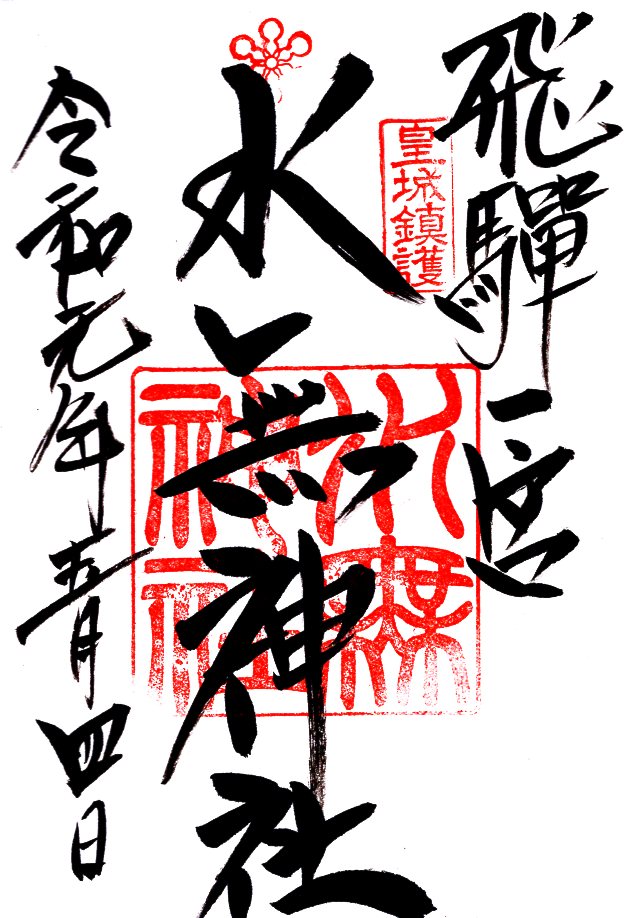 飛驒一宮
皇城鎮護
水無神社
水無神社
令和元年五月四日